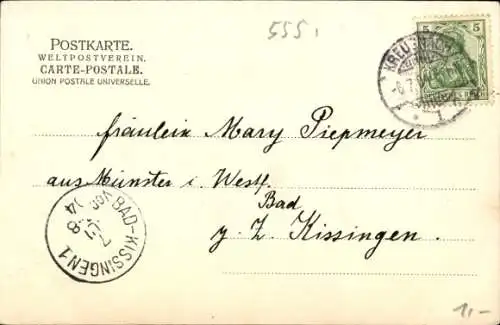 555.
POSTKARTE.
WELTPOSTVEREIN.
CARTE-POSTALE.
UNION POSTALE UNIVERSELLE.
5 5
KREUZNACH
Fräulein Mary Piepmeyer
aus Münster i. Westf.
Bad
z. Z. Kissingen.
BAD-KISSINGEN 1
1,-